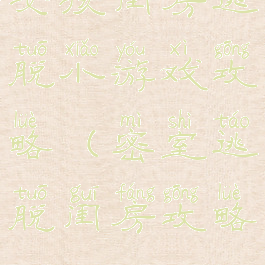 脱小游戏攻
tuō xiǎo yóu xì gōng
略（密室逃
lüè mì shì táo
脱闺房攻略
tuō guī fáng gōng lüè